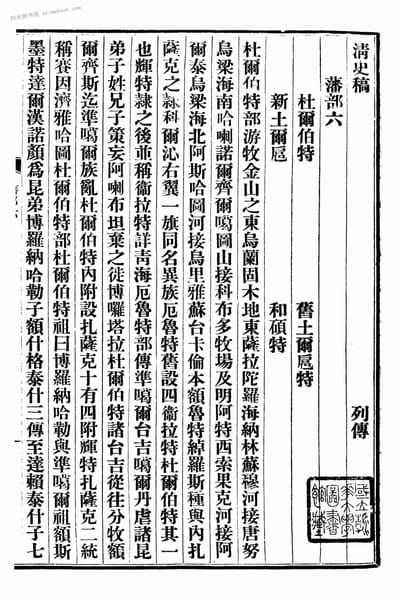 清史稿
列傳
藩部六
杜爾伯特
舊土爾扈特
新土爾扈
和碩特
杜爾伯特部游牧金山之東烏蘭固木地東薩拉陀羅海納林蘇穆河接唐努
烏梁海南哈喇諾爾齊爾噶圖山接科布多牧場及明阿特西索果克河接阿
爾泰烏梁海北阿斯哈圖河接烏里雅蘇台卡倫本額魯特綽羅斯種與內扎
薩克之嫩科爾沁右翼一旗同名異族厄魯特舊設四衞拉特杜爾伯特其一
也輝特隸之後並稱衞拉特詳青海厄魯特部傳準噶爾台吉噶爾丹虐諸昆
弟子姓兄子策妄阿喇布坦棄之徙博囉塔拉杜爾伯特諸台吉從往分牧額
爾齊斯迄準噶爾族亂杜爾伯特內附設扎薩克十有四附輝特扎薩克二統
稱賽因濟雅哈圖杜爾伯特部杜爾伯特祖曰博羅納哈勒與準噶爾祖額斯
墨特達爾漢諾顏爲昆弟博羅納哈勒子額什格泰什三傳至達賴泰什子七